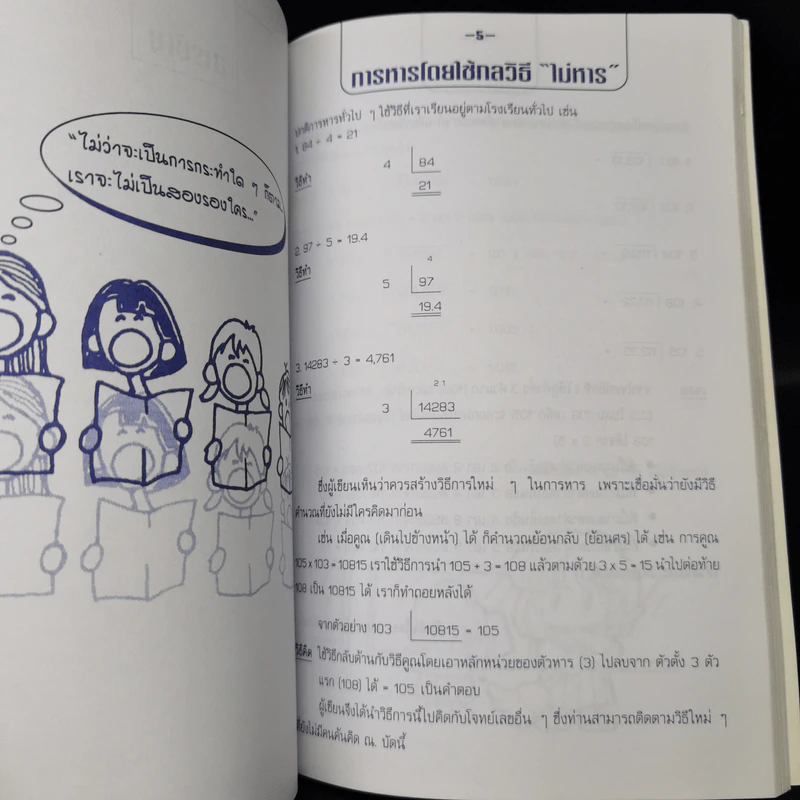 "ไม่ว่าจะเป็นการกระทำใด ๆ ก็ตาม
เราจะไม่เป็นสองรองใคร..."
-5-
การหารโดยใช้กลวิธี "ไม่หาร"
ปกติการหารทั่วไป ๆ ใช้วิธีที่เราเรียนอยู่ตามโรงเรียนทั่วไป เช่น
1. 84 ÷ 4 = 21
วิธีทำ
4 84
21
2. 97 ÷ 5 = 19.4
วิธีทำ
4
5 97
19.4
3. 14283 ÷ 3 = 4,761
วิธีทำ
2 1
3 14283
4761
ซึ่งผู้เขียนเห็นว่าควรสร้างวิธีการใหม่ ๆ ในการหาร เพราะเชื่อมั่นว่ายังมีวิธี
คำนวณที่ยังไม่มีใครคิดมาก่อน
เช่น เมื่อคูณ (เดินไปข้างหน้า) ได้ ก็คำนวณย้อนกลับ (ย้อนศร) ได้ เช่น การคูณ
105 x 103 = 10815 เราใช้วิธีการนำ 105 + 3 = 108 แล้วตามด้วย 3 x 5 = 15 นำไปต่อท้าย
108 เป็น 10815 ได้ เราก็ทำถอยหลังได้
จากตัวอย่าง 103 10815 = 105
วิธีคิด ใช้วิธีกลับด้านกับวิธีคูณโดยเอาหลักหน่วยของตัวหาร (3) ไปลบจาก ตัวตั้ง 3 ตัว
แรก (108) ได้ = 105 เป็นคำตอบ
ผู้เขียนจึงได้นำวิธีการนี้ไปคิดกับโจทย์เลขอื่น ๆ ซึ่งท่านสามารถติดตามวิธีใหม่ ๆ
ที่ยังไม่มีคนค้นคิด ณ. บัดนี้